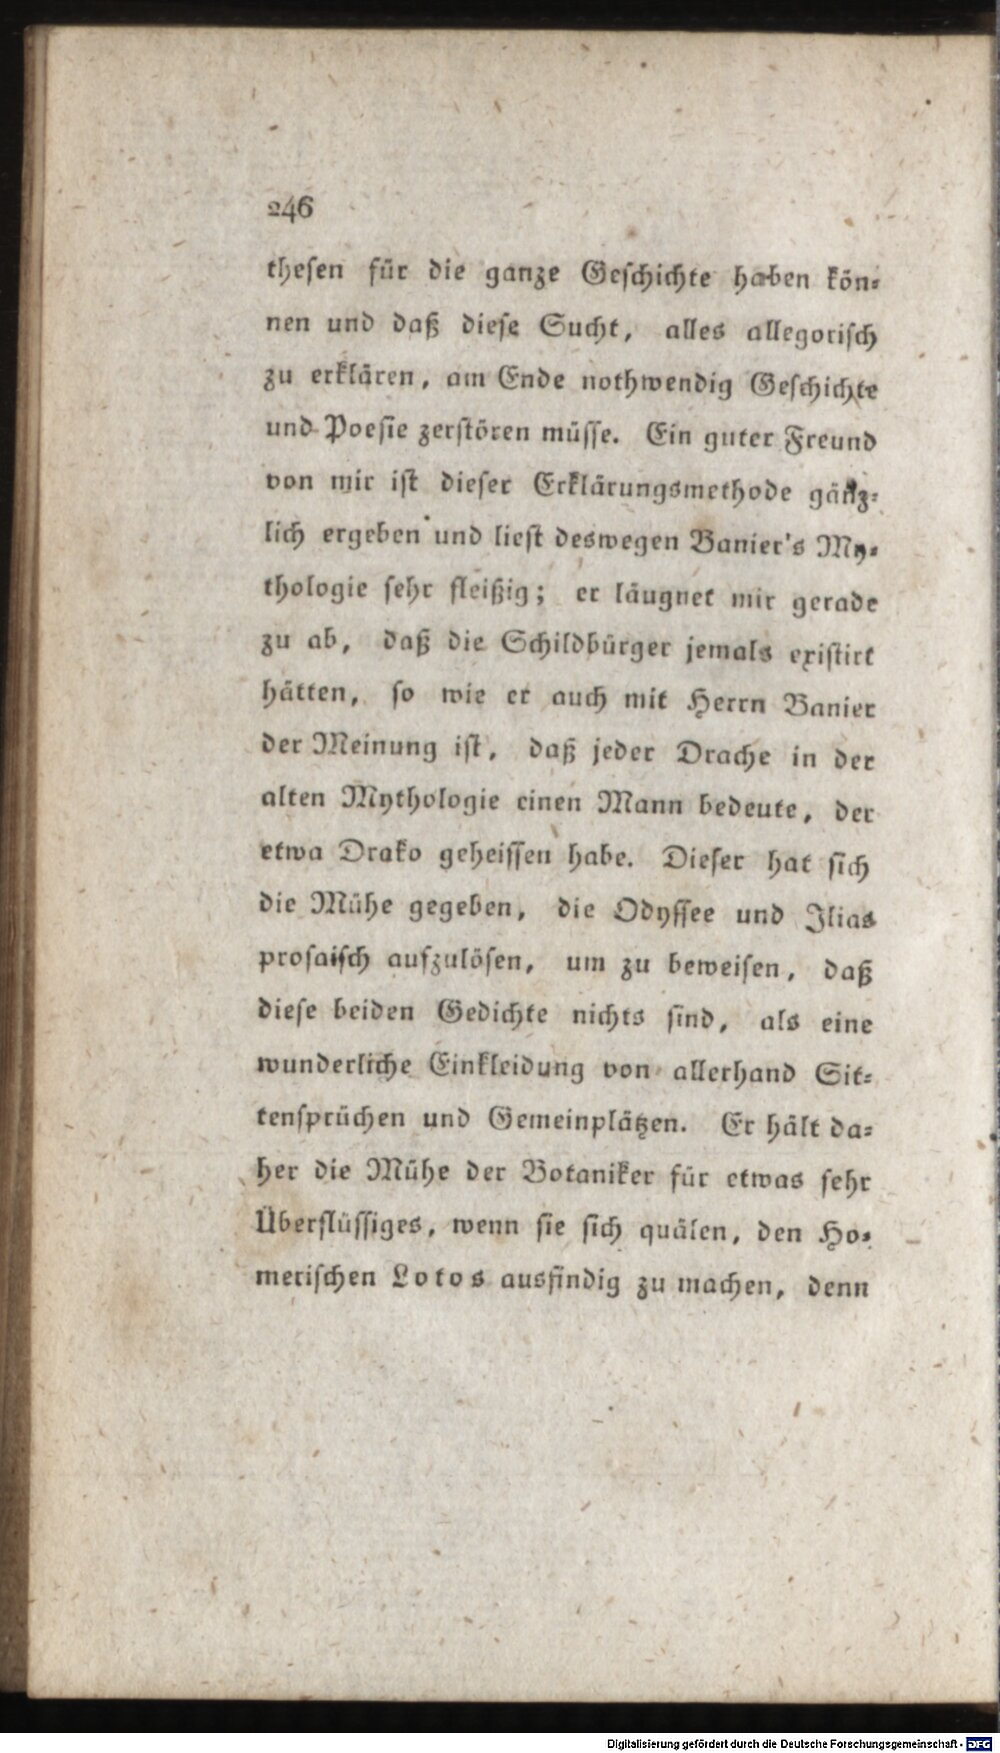 246
thesen für die ganze Geschichte haben kön-
nen und daß diese Sucht, alles allegorisch
zu erklären, am Ende nothwendig Geschichte
und Poesie zerstören müsse. Ein guter Freund
von mir ist dieser Erklärungsmethode gänz-
lich ergeben und liest deswegen Banier's My-
thologie sehr fleißig; er läugnet mir gerade
zu ab, daß die Schildbürger jemals existirt
hätten, so wie er auch mit Herrn Banier
der Meinung ist, daß jeder Drache in der
alten Mythologie einen Mann bedeute, der
etwa Drako geheissen habe. Dieser hat sich
die Mühe gegeben, die Odyssee und Ilias
prosaisch aufzulösen, um zu beweisen, daß
diese beiden Gedichte nichts sind, als eine
wunderliche Einkleidung von allerhand Sit-
tensprüchen und Gemeinplätzen. Er hält da-
her die Mühe der Botaniker für etwas sehr
Überflüssiges, wenn sie sich quälen, den Ho-
merischen Lotos ausfindig zu machen, denn
Digitalisierung gefördert durch die Deutsche Forschungsgemeinschaft - DFG